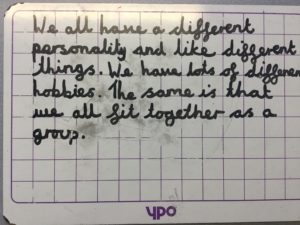 We all have a different
personality and like different
things. We have lots of differen
hobbies. The same is that
we all fit together as a
group.
ypo